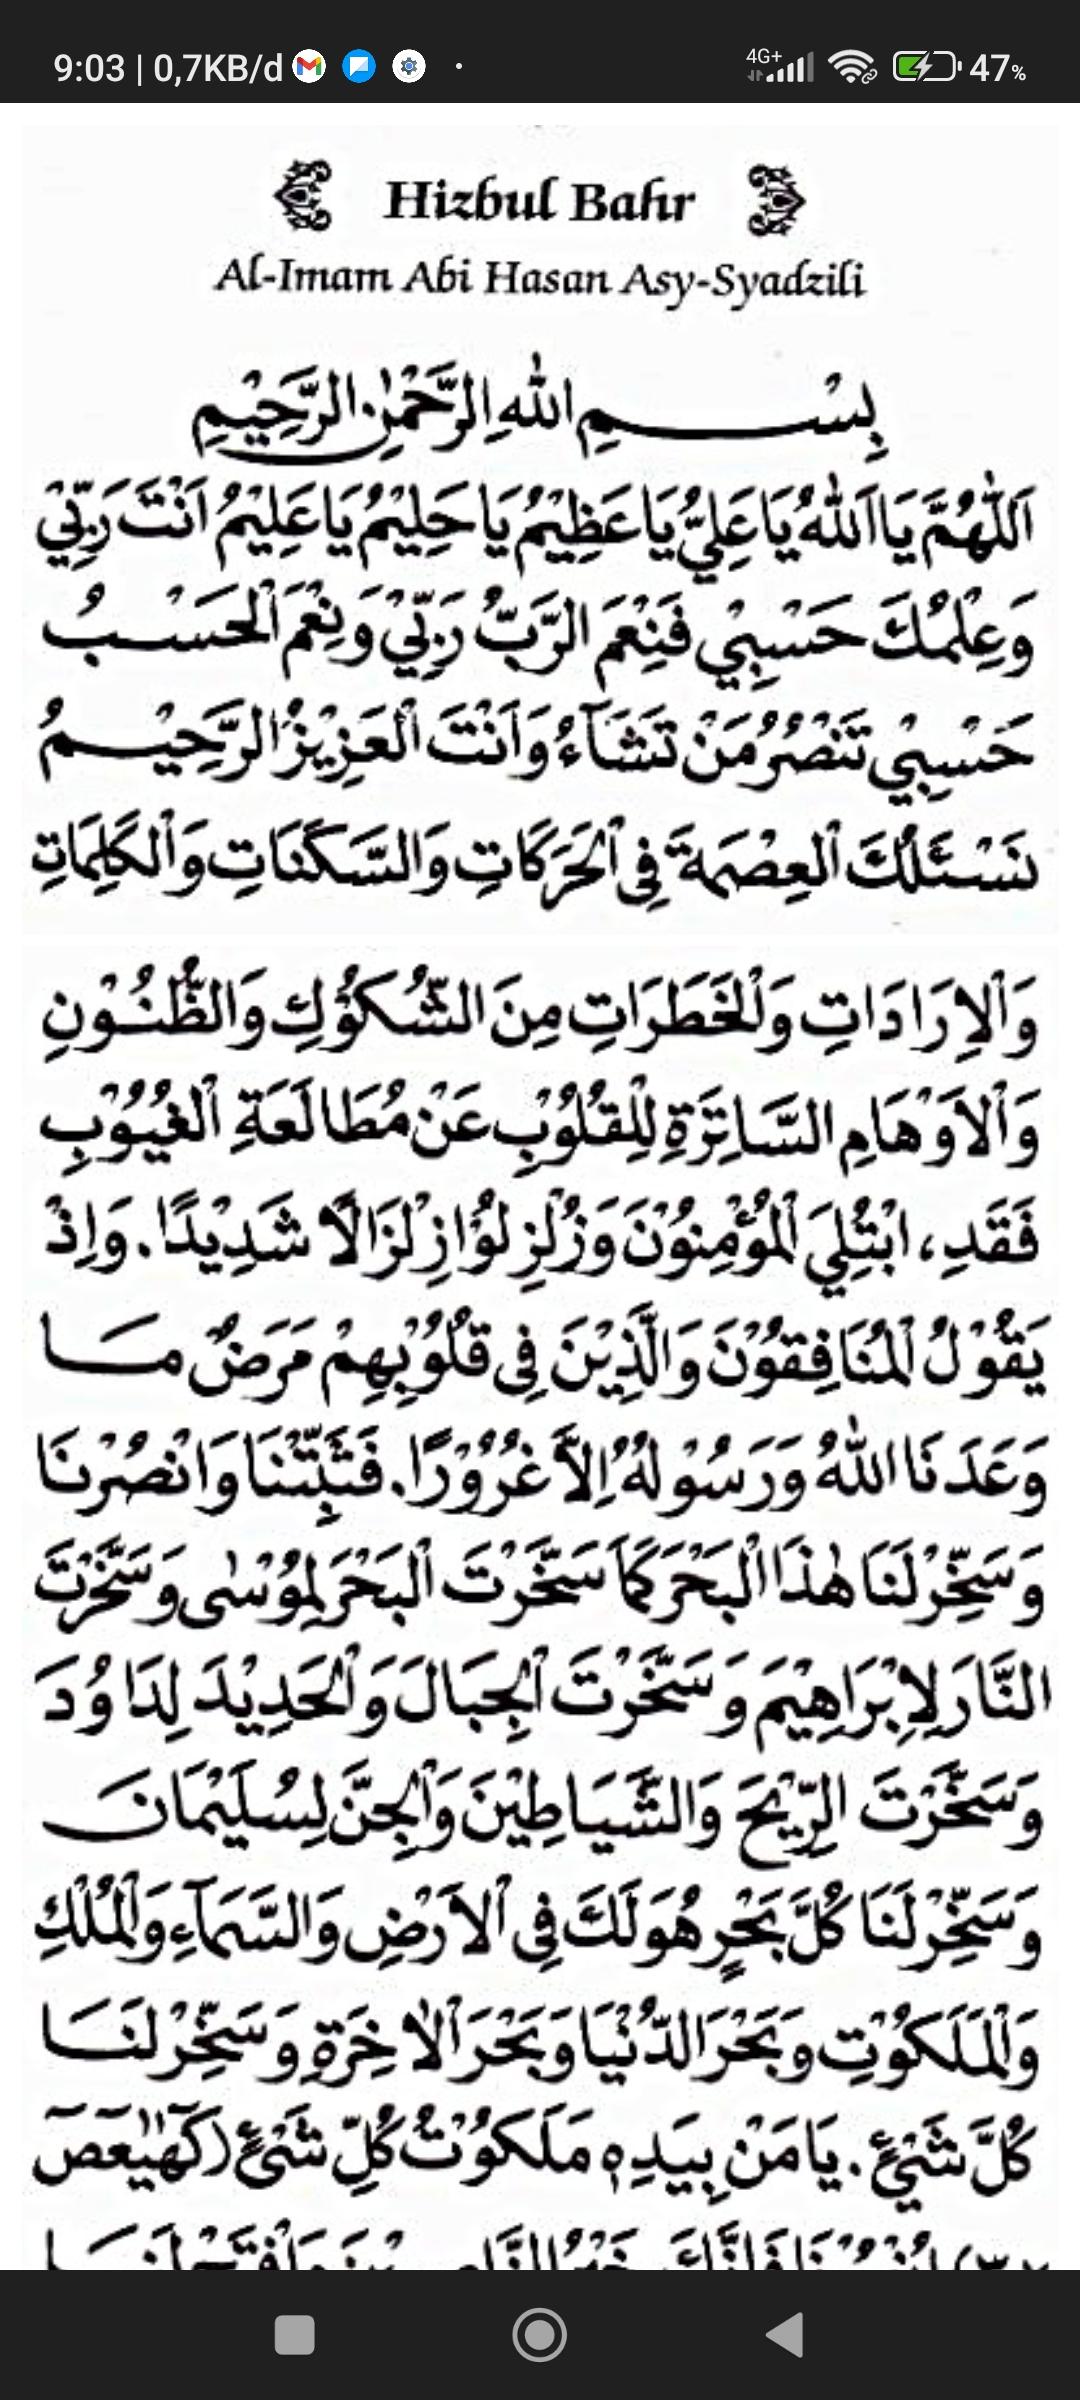 9:03 | 0,7KB/d
4G+
47%
Hizbul Bahr
Al-Imam Abi Hasan Asy-Syadzili
بِسْمِ اللهِ الرَّحْمٰنِ الرَّحِيْمِ
اَللّٰهُمَّ يَا اَللهُ يَا عَلِيُّ يَا عَظِيْمُ يَا حَلِيْمُ يَا عَلِيْمُ اَنْتَ رَبِّيْ
وَعِلْمُكَ حَسْبِيْ فَنِعْمَ الرَّبُّ رَبِّيْ وَنِعْمَ الْحَسْبُ
حَسْبِيْ تَنْصُرُ مَنْ تَشَآءُ وَاَنْتَ الْعَزِيْزُ الرَّحِيْمُ
نَسْئَلُكَ الْعِصْمَةَ فِى الْحَرَكَاتِ وَالسَّكَنَاتِ وَالْكَلِمَاتِ
وَاْلاِرَادَاتِ وَلْخَطَرَاتِ مِنَ الشُّكُوْكِ وَالظُّنُوْنِ
وَاْلاَوْهَامِ السَّاتِرَةِ لِلْقُلُوْبِ عَنْ مُطَالَعَةِ الْغُيُوْبِ
فَقَدِ، ابْتُلِيَ الْمُؤْمِنُوْنَ وَزُلْزِلُوْا زِلْزَالًا شَدِيْدًا. وَاِذْ
يَقُوْلُ الْمُنَافِقُوْنَ وَالَّذِيْنَ فِى قُلُوْبِهِمْ مَرَضٌ مَا
وَعَدَنَا اللهُ وَرَسُوْلُهُ اِلاَّ غُرُوْرًا. فَثَبِّتْنَا وَانْصُرْنَا
وَسَخِّرْ لَنَا هٰذَا الْبَحْرَ كَمَا سَخَّرْتَ الْبَحْرَ لِمُوْسٰى وَسَخَّرْتَ
النَّارَ لِاِبْرَاهِيْمَ وَسَخَّرْتَ الْجِبَالَ وَالْحَدِيْدَ لِدَاوُدَ
وَسَخَّرْتَ الرِّيْحَ وَالشَّيَاطِيْنَ وَالْجِنَّ لِسُلَيْمَانَ
وَسَخِّرْ لَنَا كُلَّ بَحْرٍ هُوَ لَكَ فِى اْلاَرْضِ وَالسَّمَآءِ وَالْمُلْكِ
وَالْمَلَكُوْتِ وَبَحْرَ الدُّنْيَا وَبَحْرَ اْلاٰخِرَةِ وَسَخِّرْ لَنَا
كُلَّ شَيْئٍ. يَا مَنْ بِيَدِهٖ مَلَكُوْتُ كُلِّ شَيْئٍ (كٓهٰيٰعٓصٓ